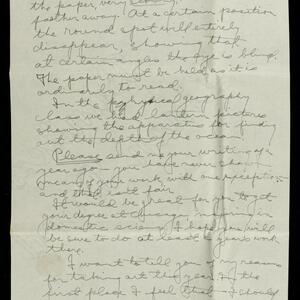 the paper, very
farther away. At a certain position
the round spot will entirely
disappear, showing that
at certain angles the eye is blind.
The paper must be held as it is
ordinarily to read.
In the physical geography
class we had lantern pictures
showing the apparatus for finding
out the depth of the ocean.
Please send me your writing of a
year ago — you have never shown
me any of your work with one exception —
and that isn't fair.
It would be great for you to get
your degree at Chicago, majoring in
domestic science. I hope you will
be sure to do at least a year's work
there.
I want to tell you of my reason
for taking art this year. In the
first place I feel that I should